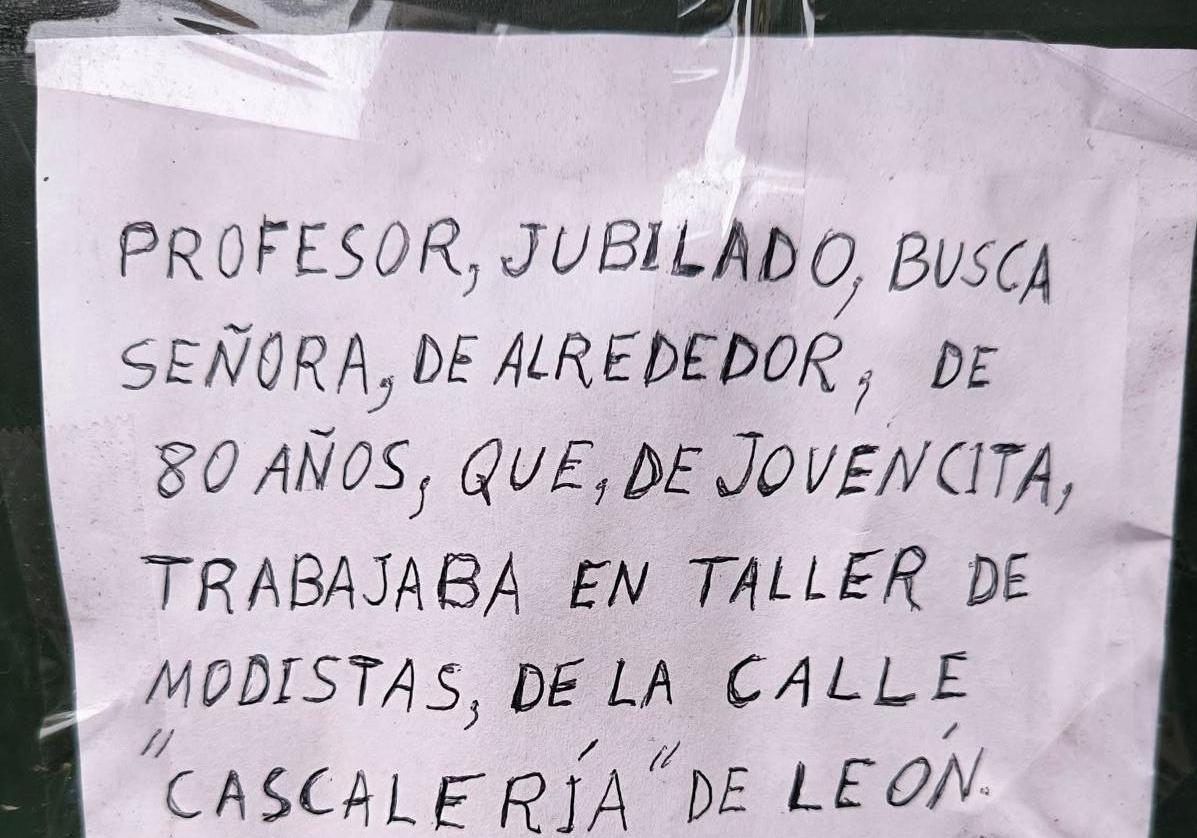 PROFESOR, JUBILADO, BUSCA
SEÑORA, DE ALREDEDOR, DE
80 AÑOS, QUE, DE JOVENCITA,
TRABAJABA EN TALLER DE
MODISTAS, DE LA CALLE
"CASCALERÍA" DE LEÓN.